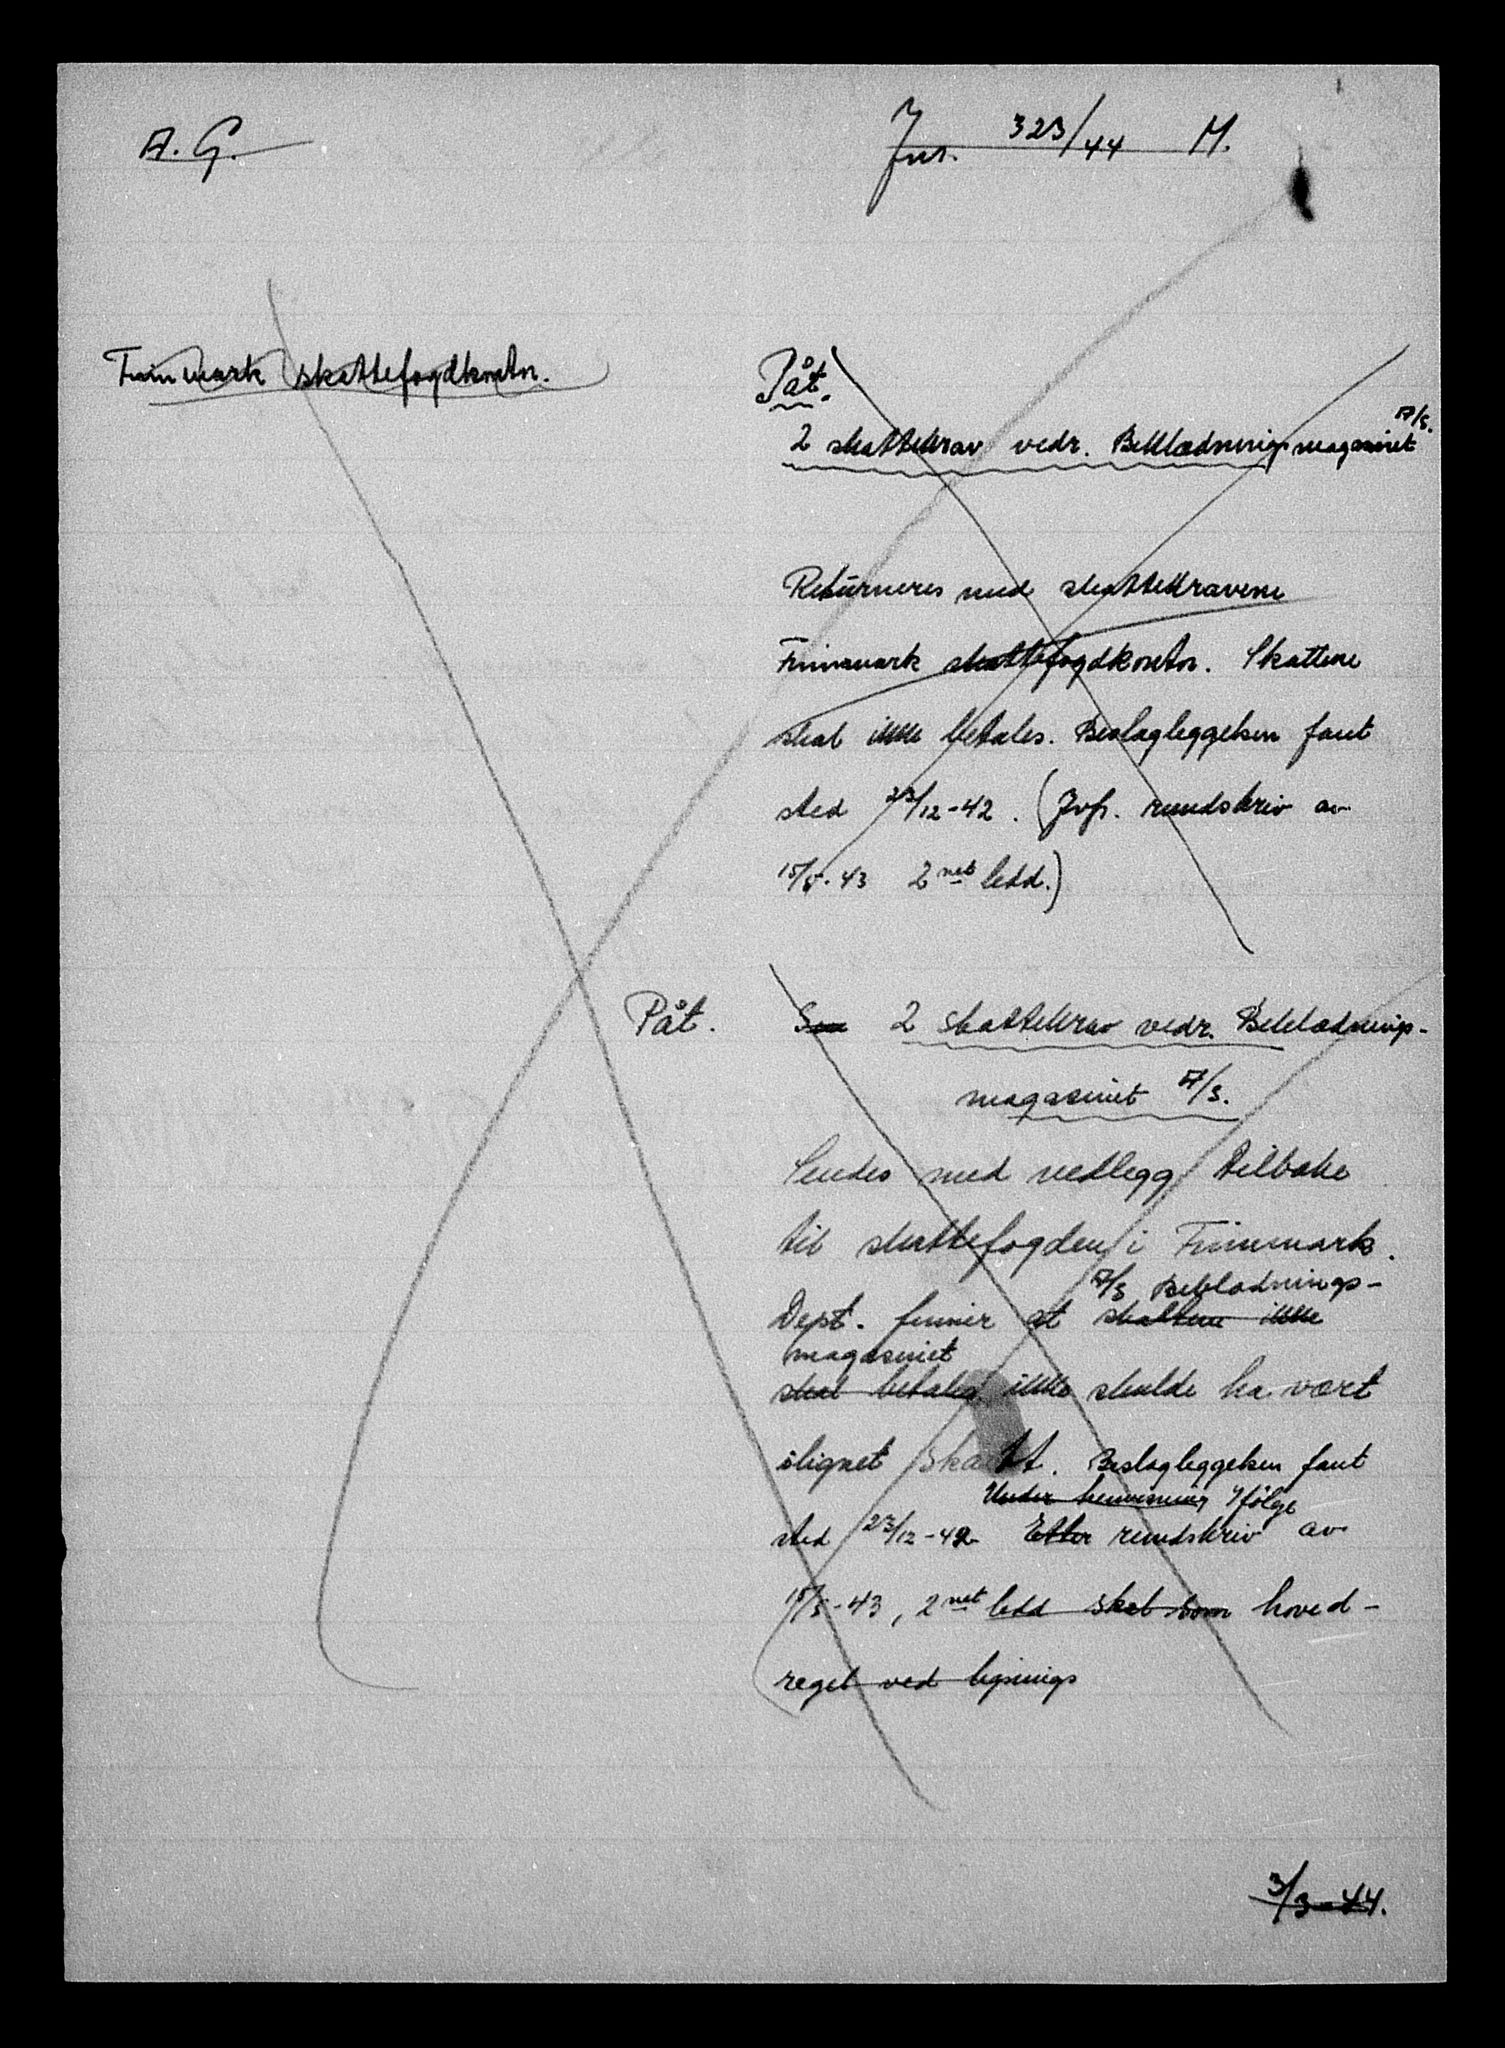 A. G.
Jnr. 323/44 M.
Finnmark skattefogdkontor.
Påt.
2 skattekrav vedr. Beklædningsmagasinet A/S.
Returneres med skattekravene
Finnmark skattefogdkontor. Skattene
skal ikke betales. Beslagleggelsen fant
sted 23/12-42. (Jvfr. rundskriv av
15/5-43 2net ledd.)
Påt.
Som 2 skattekrav vedr. Beklædnings-
magasinet A/S.
Sendes med vedlegg tilbake
til skattefogden i Finnmark.
A/S Beklædnings-
Dept. finner at skattene ikke
magasinet
skal betales ikke skulde ha vært
ilignet skatt. Beslagleggelsen fant
Under henvisning Ifølge
sted 23/12-42 Etter rundskriv av
15/5-43, 2net ledd skal som hoved-
regel ved lignings
3/3-44.